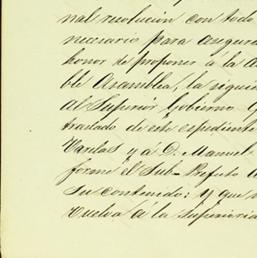 nal resolucion con todo
necesario para asegura
honor de proponer á la A
ble Asamblea, la siguie
al Superior Gobierno
traslado de este expediente
Varelas y á D. Manuel
forme el Sub-Prefeto
su contenido: y que
vuelva á la Superiorida